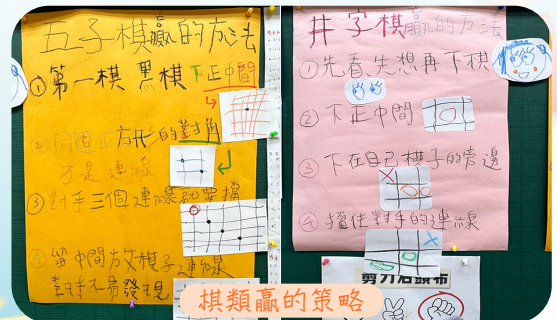 五子棋贏的方法
①第一棋黑棋下正中間
②同個正方形的對角
才是連線
③對手三個連線就要擋
④留中間放棋子連線
對手不易發現
井字棋贏的方法
①先看先想再下棋
②下正中間
③下在自己棋子的旁邊
④擋住對手的連線
剪刀石頭布
棋類贏的策略